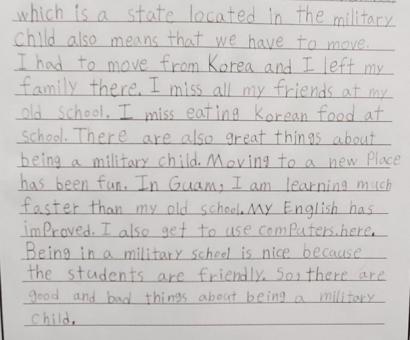 which is a state located in the military
child also means that we have to move.
I had to move from Korea and I left my
family there. I miss all my friends at my
old school. I miss eating Korean food at
school. There are also great things about
being a military child. Moving to a new Place
has been fun. In Guam, I am learning much
faster than my old school. My English has
imProved. I also get to use comPuters.here.
Being in a military school is nice because
the students are friendly. So, there are
good and bad things about being a military
child.